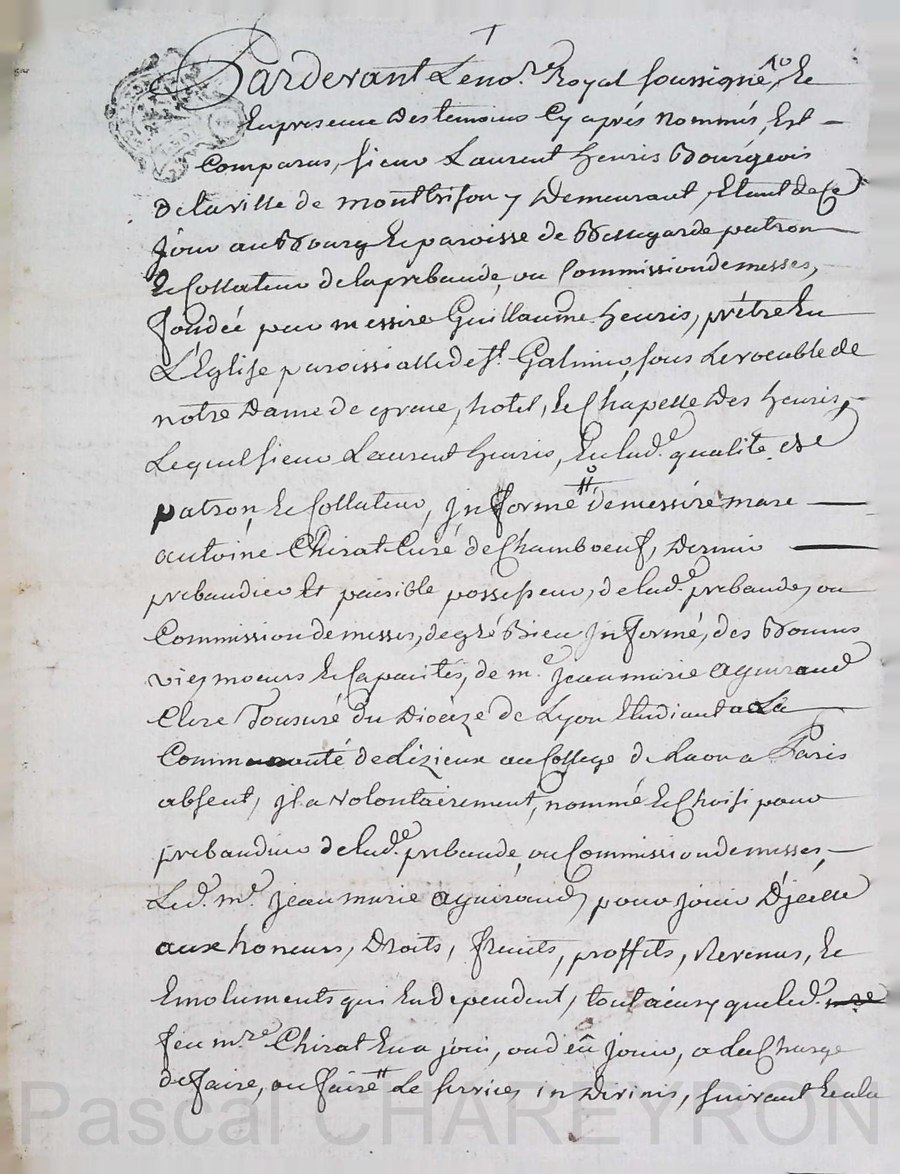 Pardevant Le no.re Royal soussigné, Et
En presence Des temoins Cy aprés nommés, Est
Comparus, sieur Laurent heuris Bourgeois
de la ville de montbrison y Demeurant, Etant de Ce
jour au Bourg Et paroisse de Bellegarde patron
Et Collateur de la prebande, ou Commission de messes,
fondée par messire Guillaume heuris, prêtre En
L'Eglise paroissialle de St. Galmier, sous Le vocable de
notre Dame de grace, hotel, Et Chapelle Des heuris,
Lequel sieur Laurent heuris, En lad.e qualité de
patron, Et Collateur, jnformé de messire marc
antoine Chirat Curé de Chamboeuf, Dernier
prebandier Et paisible possesseur, de lad.e prebande, ou
Commission de messes, de gré Bien jnformé, des Bonnes
vie, moeurs Et Capacités, de m.e jean marie aguiraud
Clerc Tonsuré du Diocèze de Lyon Etudiant a La
Communauté de Lizieux au College de a Paris
absent, jl a volontairement, nommé Et Choisi pour
prebandier de lad.e prebande, ou Commission de messes,
Led. m.e jean marie aguiraud, pour jouir D'jcelle
aux honeurs, Droits, fruits, proffits, Revenus, Et
Emoluments qui En dependent, tout ainsy que led.
feu m.re Chirat En a joui, ou deû jouir, a la Charge
de faire, ou faire le service in Divinis, suivant Et a la
Pascal CHAREYRON